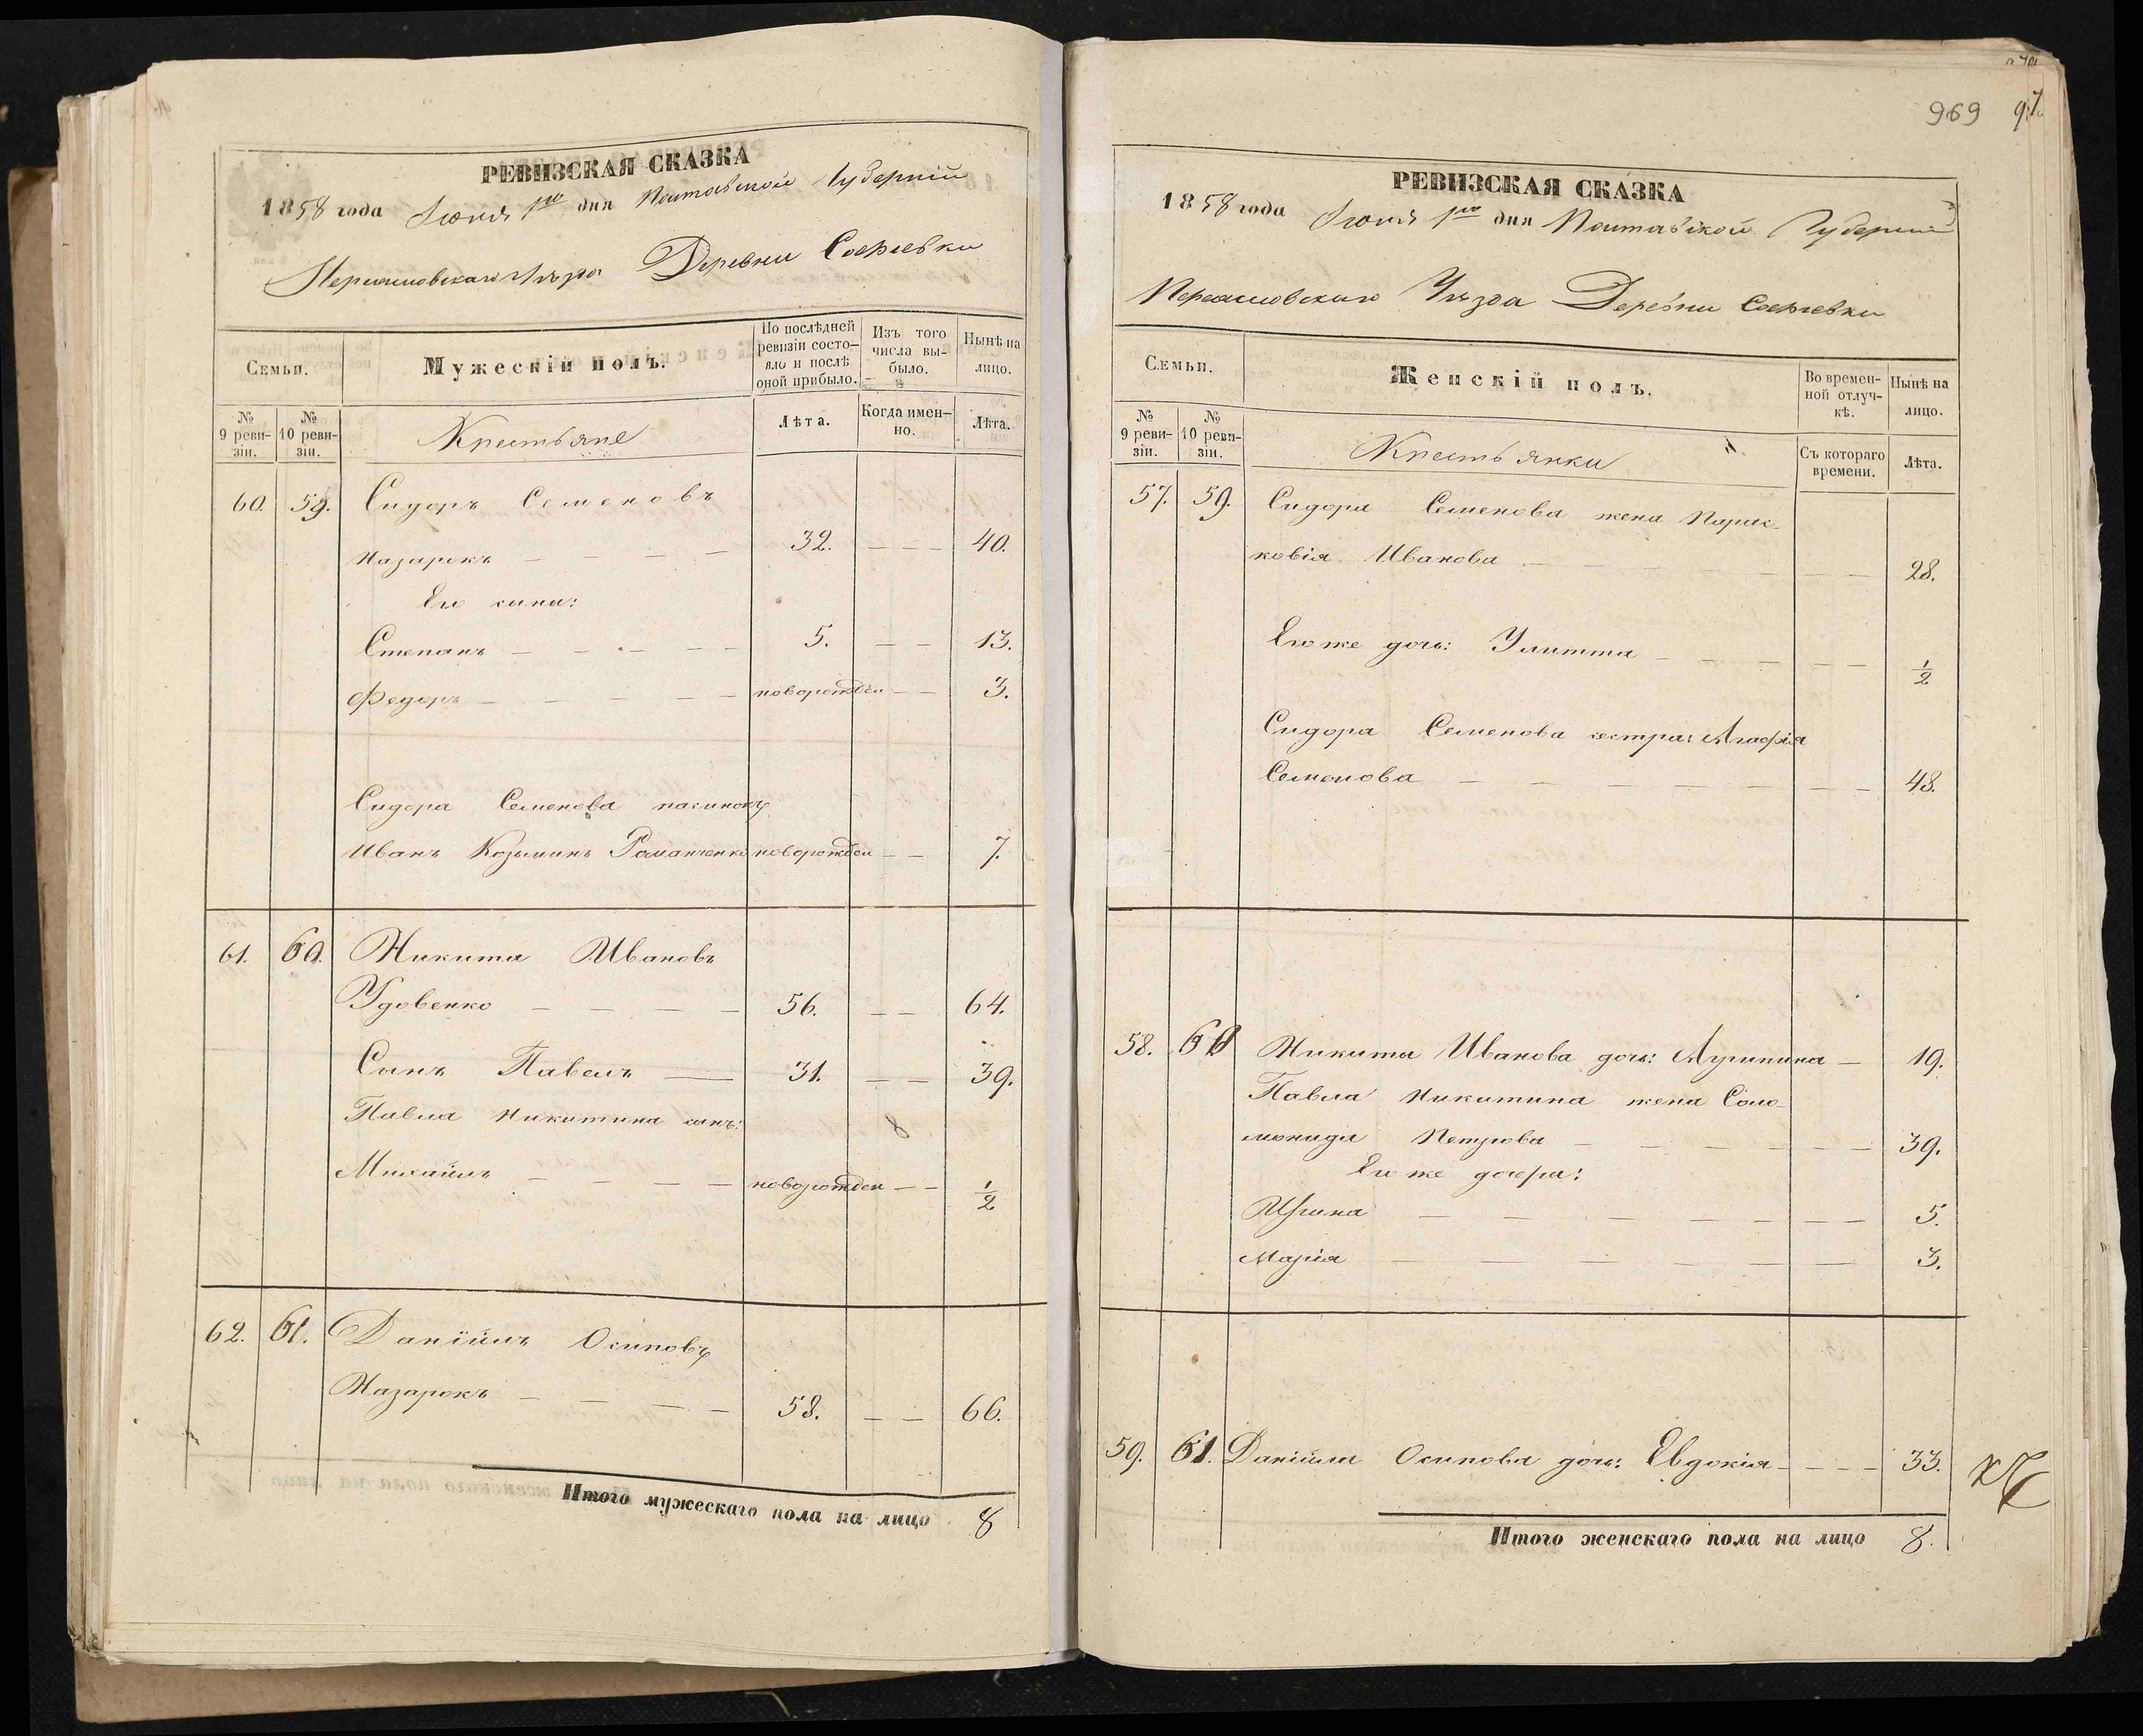 РЕВИЗСКАЯ СКАЗКА
1858 года Июня 1го дня Полтавской Губерніи
Переяславскаго Уѣзда Деревни Софіевки
Семьи.
Мужескій полъ.
По послѣдней ревизіи состояло и послѣ оной прибыло.
Изъ того числа выбыло.
Нынѣ на лицо.
№ 9 ревизіи.
№ 10 ревизіи.
Крестьяне
Лѣта.
Когда именно.
Лѣта.
60. 59. Сидоръ Семеновъ
Назарокъ — — — — 32. — — — 40.
Его сыны:
Степанъ — — — — — 5. — — 13.
Федоръ — — — — — новорожден — — 3.
Сидора Семенова пасинокъ
Иванъ Козьминъ Романченко новорожден — — 7.
61. 60. Никита Ивановъ
Удовенко — — — — 56. — — 64.
Сынъ Павелъ — 31. — — 39.
Павла Никитина сынъ:
8
Михаилъ — — — — новорожден — — 1/2
62. 61. Даніилъ Осиповъ
Назарокъ — — — — 58. — — 66.
Итого мужескаго пола на лицо 8
969 97
РЕВИЗСКАЯ СКАЗКА
1858 года Июня 1го дня Полтавской Губерніи
Переяславскаго Уѣзда Деревни Софіевки
Семьи.
Женскій полъ.
Во временной отлучкѣ.
Нынѣ на лицо.
№ 9 ревизіи.
№ 10 ревизіи.
Крестьянки
Съ котораго времени.
Лѣта.
57. 59. Сидора Семенова жена Парас-
ковія Иванова — — — — — — — — 28.
Его же дочь: Улитта — — — — — 1/2
Сидора Семенова сестра: Агафія
Семенова — — — — — — — — 48.
58. 60 Никиты Иванова дочь: — 19.
Павла Никитина жена Соло-
монида Петрова — — — — — — 39.
Его же дочера:
Ирина — — — — — — — — 5.
Марія — — — — — — — 3.
59. 61. Даніила Осипова дочь: Евдокія — — — — 33.
Итого женскаго пола на лицо 8.